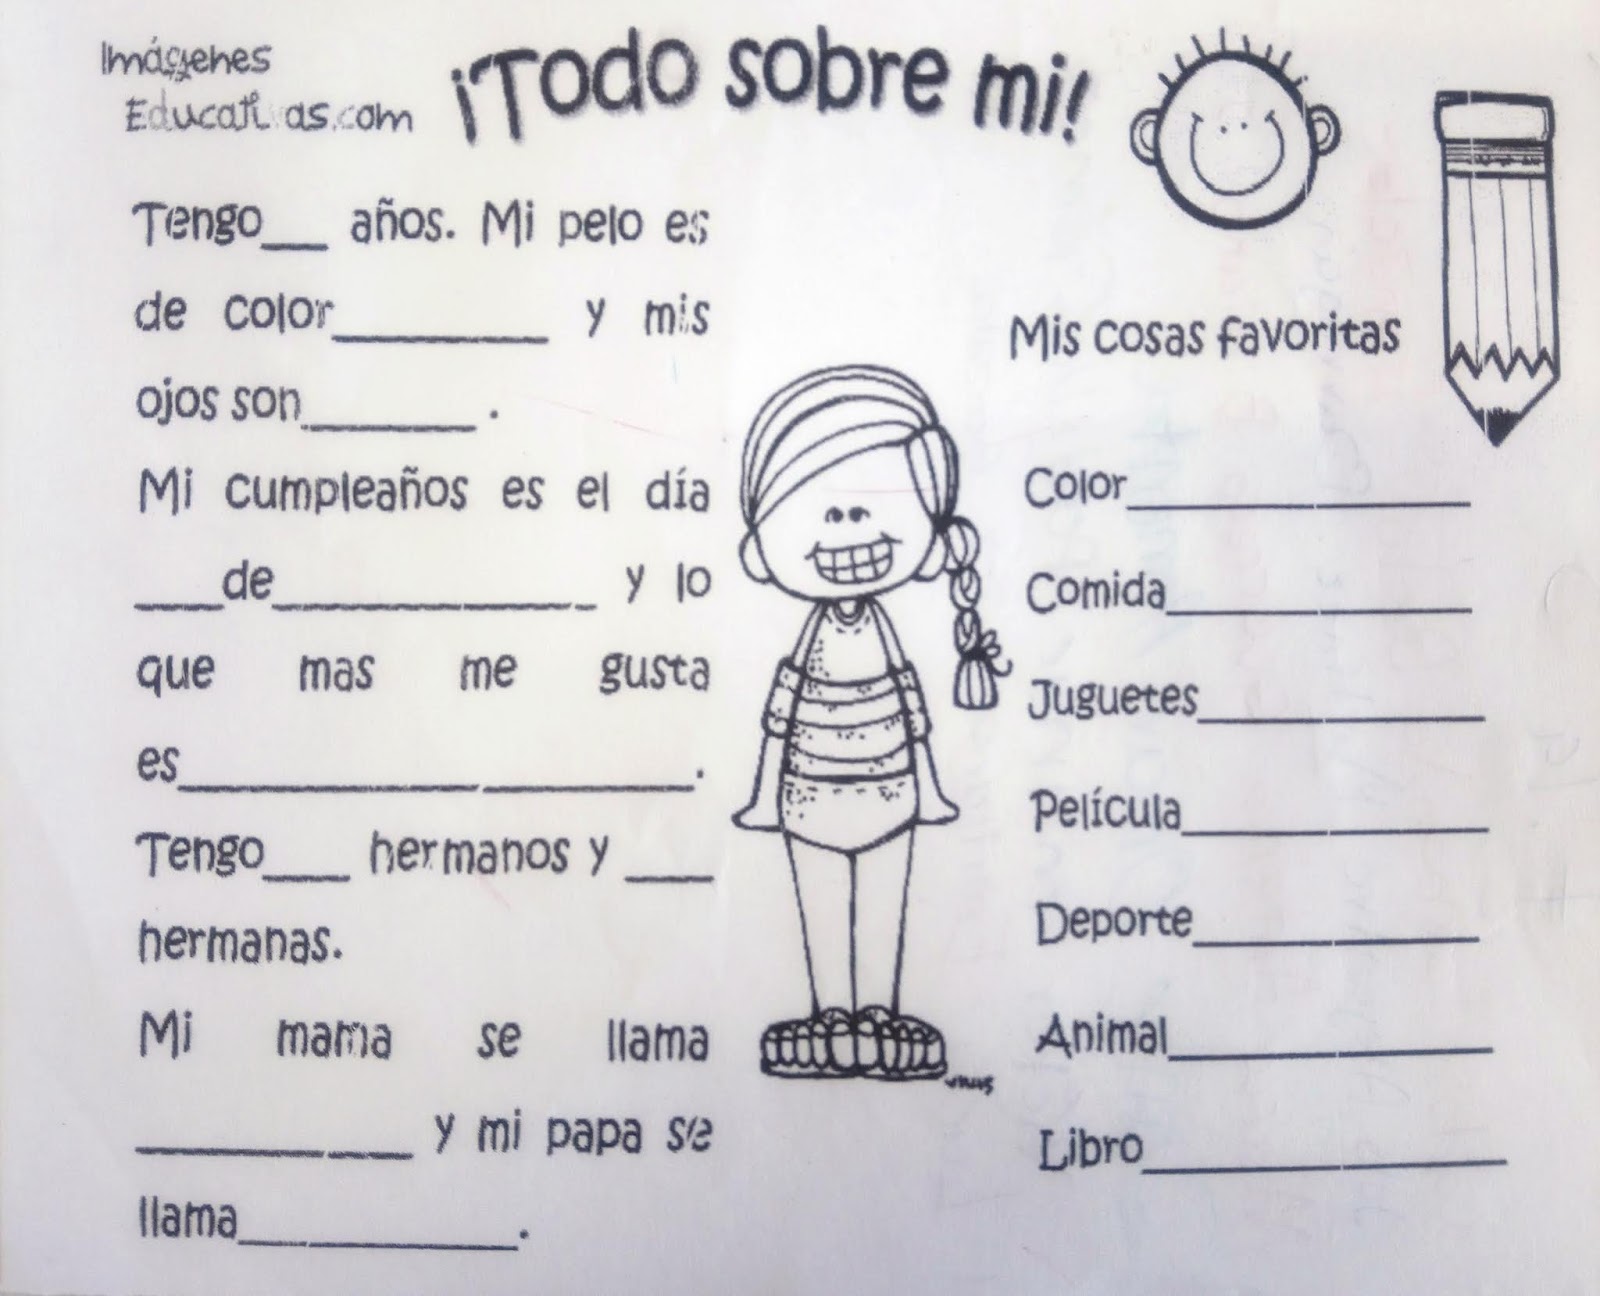 Imágenes
Educativas.com
¡Todo sobre mi!
Tengo___ años. Mi pelo es
de color__________ y mis
ojos son________ .
Mi cumpleaños es el día
____de_______________ y lo
que mas me gusta
es________________________.
Tengo____ hermanos y ____
hermanas.
Mi mama se llama
_____________ y mi papa se
llama_____________.
Mis cosas favoritas
Color________________
Comida______________
Juguetes_____________
Película______________
Deporte_____________
Animal_______________
Libro_________________